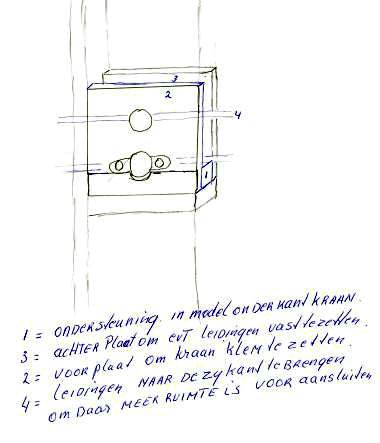 3
2
4
1
1 = ONDERSTEUNING. IN model ONDERKANT KRAAN.
3 = ACHTER Plaat om EVT LEIDINGEN VAST te zetten.
2 = VOOR plaat om kraan klem te zetten.
4 = LEIDINGEN NAAR DE ZYKANT te BRENGEN
OM DAAR MEER RUIMTE IS VOOR AANSLUITEN